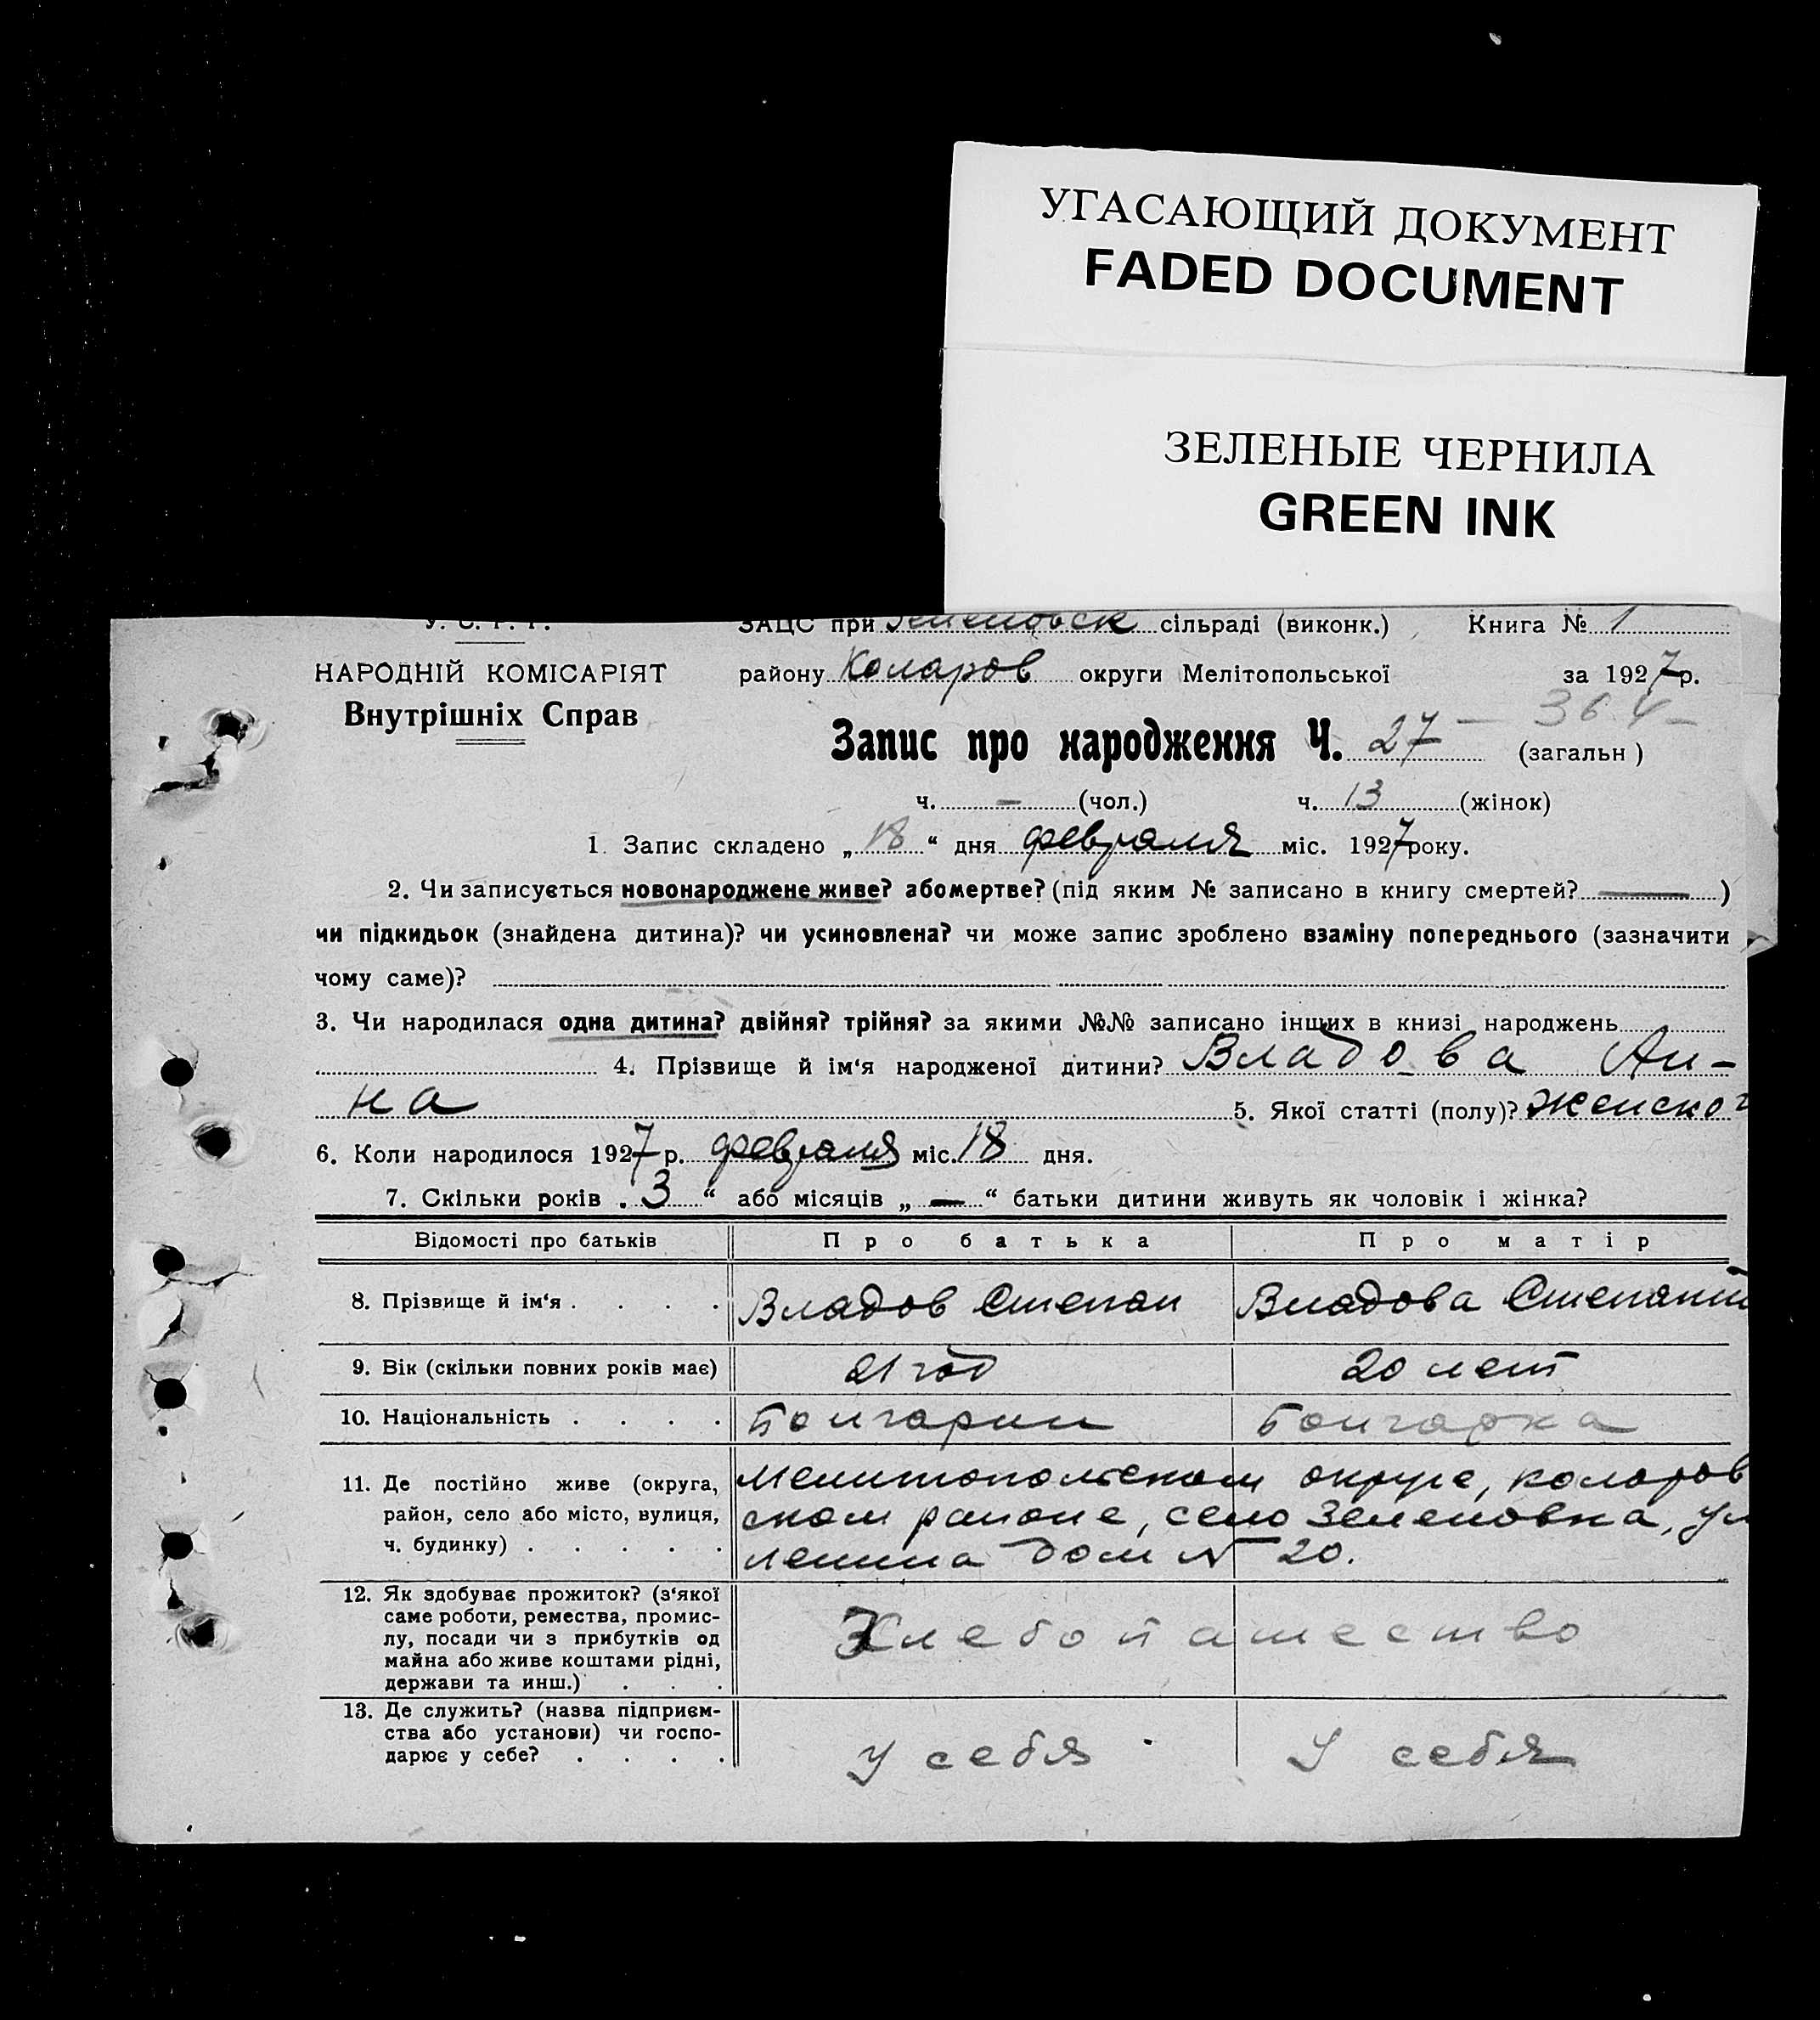 УГАСАЮЩИЙ ДОКУМЕНТ
FADED DOCUMENT
ЗЕЛЕНЫЕ ЧЕРНИЛА
GREEN INK
У. С. Р. Р. ЗАЦС при сільраді (виконк.) Книга № 1
НАРОДНІЙ КОМІСАРІЯТ району Коларов округи Мелітопольської за 1927 р.
Внутрішніх Справ
Запис про народження Ч. 27 — 364 —
(загальн )
ч. — (чол.) ч. 13 (жінок)
1. Запис складено „ 18 “ дня февраля міс. 1927 року.
2. Чи записується новонароджене живе? або мертве? (під яким № записано в книгу смертей? — )
чи підкидьок (знайдена дитина)? чи усиновлена? чи може запис зроблено взаміну попереднього (зазначити
чому саме)?
3. Чи народилася одна дитина? двійня? трійня? за якими №№ записано інших в книзі народжень
4. Прізвище й ім‘я народженої дитини? Владова Ан-
на 5. Якої статті (полу)? женског
6. Коли народилося 1927 р. февраля міс. 18 дня.
7. Скільки років „ 3 “ або місяців „ — “ батьки дитини живуть як чоловік і жінка?
Відомості про батьків Про батька Про матір
8. Прізвище й ім‘я . . . . Владов Степан Владова Степанид
9. Вік (скільки повних років має) 21 год 20 лет
10. Національність . . . . Болгарин Болгарка
11. Де постійно живе (округа, Мелитопольском округе, коларов
район, село або місто, вулиця, ском районе, село Зеленовка, ул
ч. будинку) . . . . . Ленина дом № 20.
12. Як здобуває прожиток? (з‘якої
саме роботи, ремества, промис-
лу, посади чи з прибутків од Хлебопашество
майна або живе коштами рідні,
держави та инш.) . . .
13. Де служить? (назва підприєм-
ства або установи) чи госпо-
дарює у себе? . . . . У себя У себя